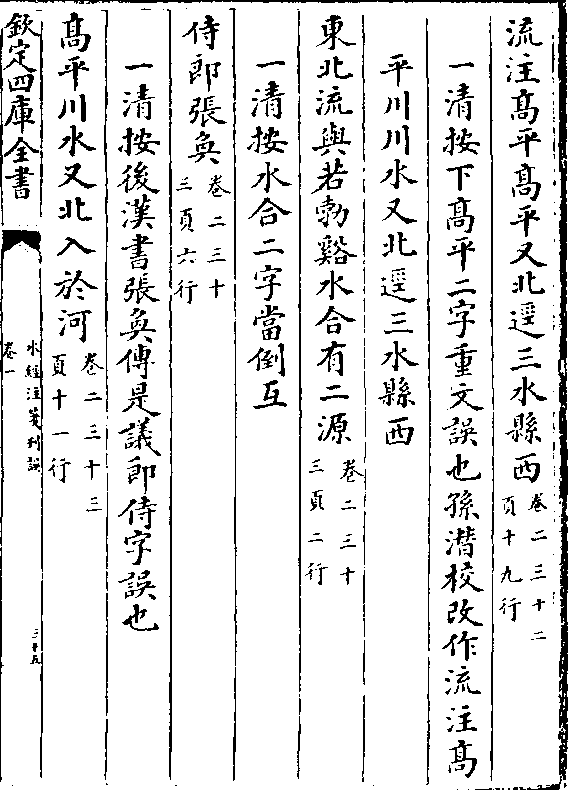 流注髙平髙平又北逕三水縣西卷二三十二頁十九行
一清按下髙平二字重文誤也孫潛校改作流注髙
平川川水又北逕三水縣西
東北流與若勃谿水合有二源卷二三十三頁二行
一清按水合二字當倒互
侍郎張奐卷二三十三頁六行
一清按後漢書張奐傳是議郎侍字誤也
髙平川水又北入於河卷二三十三頁十一行
欽定四庫全書
水經注箋刊誤
卷一
三十五